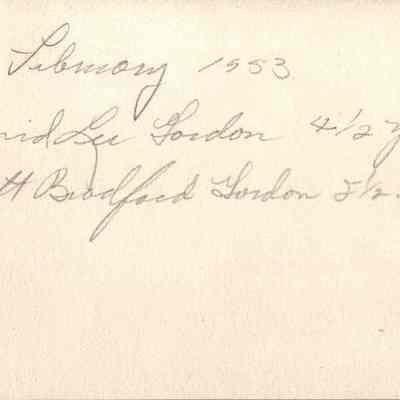 February 1953
vid Lee Gordon 4 1/2 y
tt Bradford Gordon 2 1/2